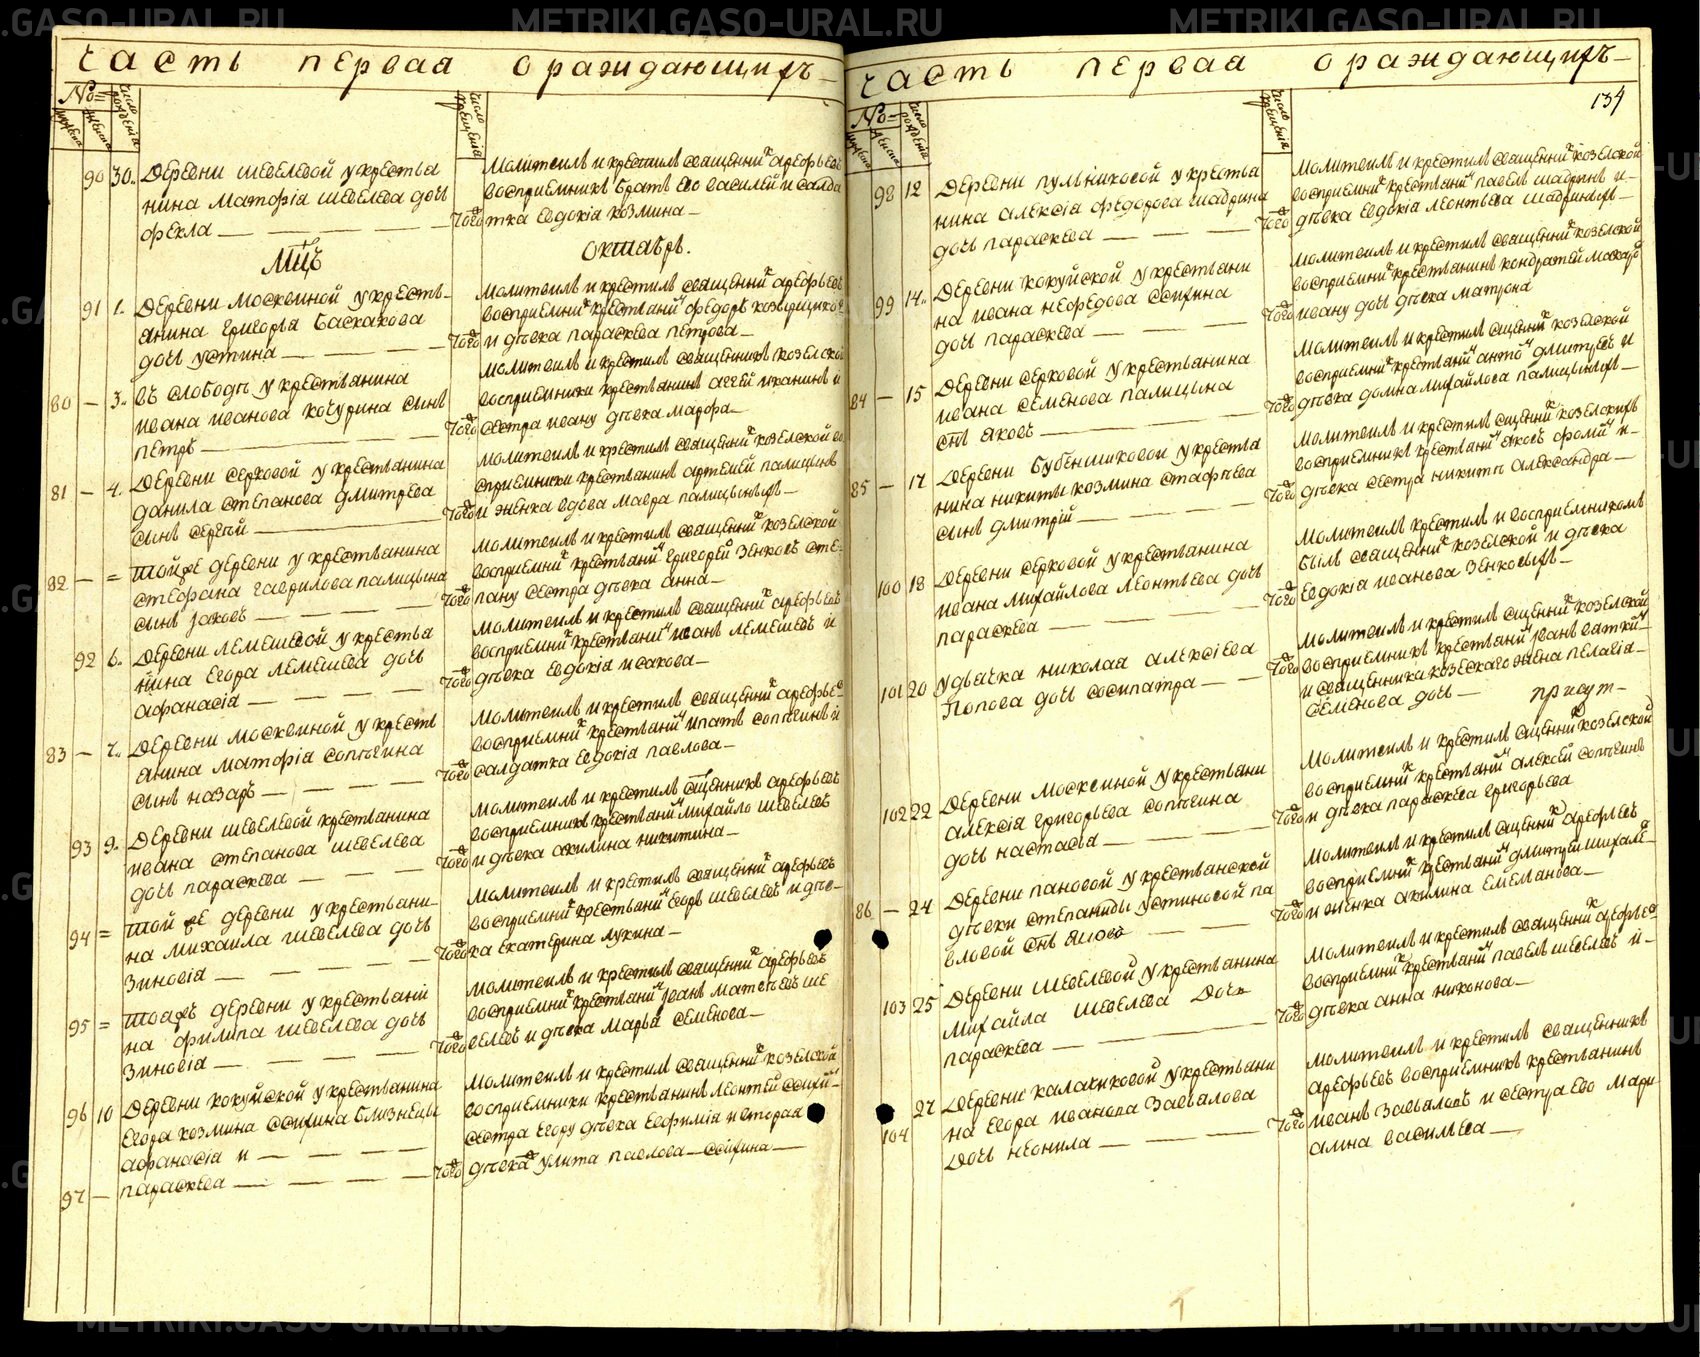 METRIKI.GASO-URAL.RU
METRIKI.GASO-URAL.RU
часть первая о раждающихъ
№
мужеска
женска
число рожденiя
число крещенiя
90 30. деревни шевелевой у крестья
нина матфiя шевелева дочь
фекла
молитвилъ и крестилъ священникъ арефьевъ
восприемникъ братъ ево василей и салда
того тка евдокiя козмина
мцъ октябрь.
91 1. деревни москвиной у кресть
янина григорья баскакова
дочь устина
молитвилъ и крестилъ священникъ арефьевъ
восприемникъ крестьянинъ федоръ
того и девка параскева петрова
80 — 3. въ слободе у крестьянина
ивана иванова кочурина сынъ
петръ
молитвилъ и крестилъ священникъ козелской
восприемники крестьянинъ аггей иканинъ и
того сестра ивану девка марфа
81 — 4. деревни серковой у крестьянина
данила степанова дмитрева
сынъ сергей
молитвилъ и крестилъ священникъ козелской во
сприемники крестьянинъ артемей палицынъ
того и женка вдова мавра палицыныхъ
82 — = той же деревни у крестьянина
стефана гаврилова палицына
сынъ iаковъ
молитвилъ и крестилъ священникъ козелской
восприемникъ крестьянинъ григорей зенковъ сте
того пану сестра девка анна
92 6. деревни лемешевой у крестья
нина егора лемешева дочь
афанасiя
молитвилъ и крестилъ священникъ арефьевъ
восприемникъ крестьянинъ иванъ лемешевъ и
того девка евдокiя исакова
83 — 7. деревни москвиной у кресть
янина матфiя сопегина
сынъ назаръ
молитвилъ и крестилъ священникъ арефьевъ
восприемникъ крестьянинъ ипатъ сопегинъ и
того салдатка евдокiя павлова
93 9. деревни шевелевой крестьянина
ивана степанова шевелева
дочь параскева
молитвилъ и крестилъ сщенникъ арефьевъ
восприемникъ крестьянинъ михайло шевелевъ
того и девка акилина никитина
94 = той же деревни у крестьяни
на михаила шевелева дочь
зиновiя
молитвилъ и крестилъ священникъ арефьевъ
восприемникъ крестьянинъ егоръ шевелевъ и дев
того ка екатерина лукина
95 = тояжъ деревни у крестьяни
на филипа шевелева дочь
зиновiя
молитвилъ и крестилъ священникъ арефьевъ
восприемникъ крестьянинъ iванъ матвеевъ ше
того велевъ и девка марья семенова
96 10 деревни кокуйской у крестьянина
егора козмина ссихина близнецы
афанасiя и
97 — параскева
молитвилъ и крестилъ священникъ козелской
восприемники крестьянинъ леонтей ссихинъ
сестра егору девка евфимiя и вторая
того девка улита павлова ссихина
часть первая о раждающихъ
134
№
мужеска
женска
число рожденiя
число крещенiя
98 12 деревни пульниковой у крестья
нина алексiя федорова шабрина
дочь параскева
молитвилъ и крестилъ священникъ козелской
восприемникъ крестьянинъ павелъ шабринъ и
того девка евдокiя леонтьева шабриныхъ
99 14. деревни кокуйской у крестьяни
на ивана нефедова ссихина
дочь параскева
молитвилъ и крестилъ священникъ козелской
восприемникъ крестьянинъ кондратей
того ивану дочь девка матрона
84 — 15 деревни серковой у крестьянина
ивана семенова палицына
снъ яковъ
молитвилъ и крестилъ сщенникъ козелской
восприемникъ крестьянинъ антонъ дмитревъ и
того девка домна михайлова палицыныхъ
85 — 17 деревни бубенщиковой у крестья
нина никиты козмина стафеева
сынъ дмитрiй
молитвилъ и крестилъ сщенникъ козелскихъ
восприемникъ крестьянинъ яковъ фоминъ и
того девка сестра никиты александра
100 18 деревни серковой у крестьянина
ивана михайлова леонтьева дочь
параскева
молитвилъ крестилъ и восприемникомъ
былъ священникъ козелской и девка
того евдокiя иванова зенковыхъ
101 20 у дьячка николая алексiева
попова дочь сосипатра
молитвилъ и крестилъ сщенникъ козелской
того восприемникъ крестьянинъ iванъ
и священника козелскаго жена пелагiя
семенова дочь присут
102 22 деревни москвиной у крестьяни
алексiя григорьева сопегина
дочь настасья
молитвилъ и крестилъ сщенникъ козелской
восприемникъ крестьянинъ алексей сопегинъ
того и девка параскева григорьева
86 — 24 деревни пановой у крестьянской
девки степаниды устиновой па
вловой снъ яковъ
молитвилъ и крестилъ сщенникъ арефьевъ
восприемникъ крестьянинъ дмитрей
того и женка акилина емельянова
103 25 деревни шевелевой у крестьянина
михайла шевелева дочь
параскева
молитвилъ и крестилъ священникъ арефьевъ
восприемникъ крестьянинъ павелъ шевелевъ и
того девка анна никонова
104 27 деревни калачиковой у крестьяни
на егора иванова завьялова
дочь неонила
молитвилъ и крестилъ священникъ
арефьевъ восприемникъ крестьянинъ
того иванъ завьяловъ и сестра ево мари
амна васильева
METRIKI.GASO-URAL.RU